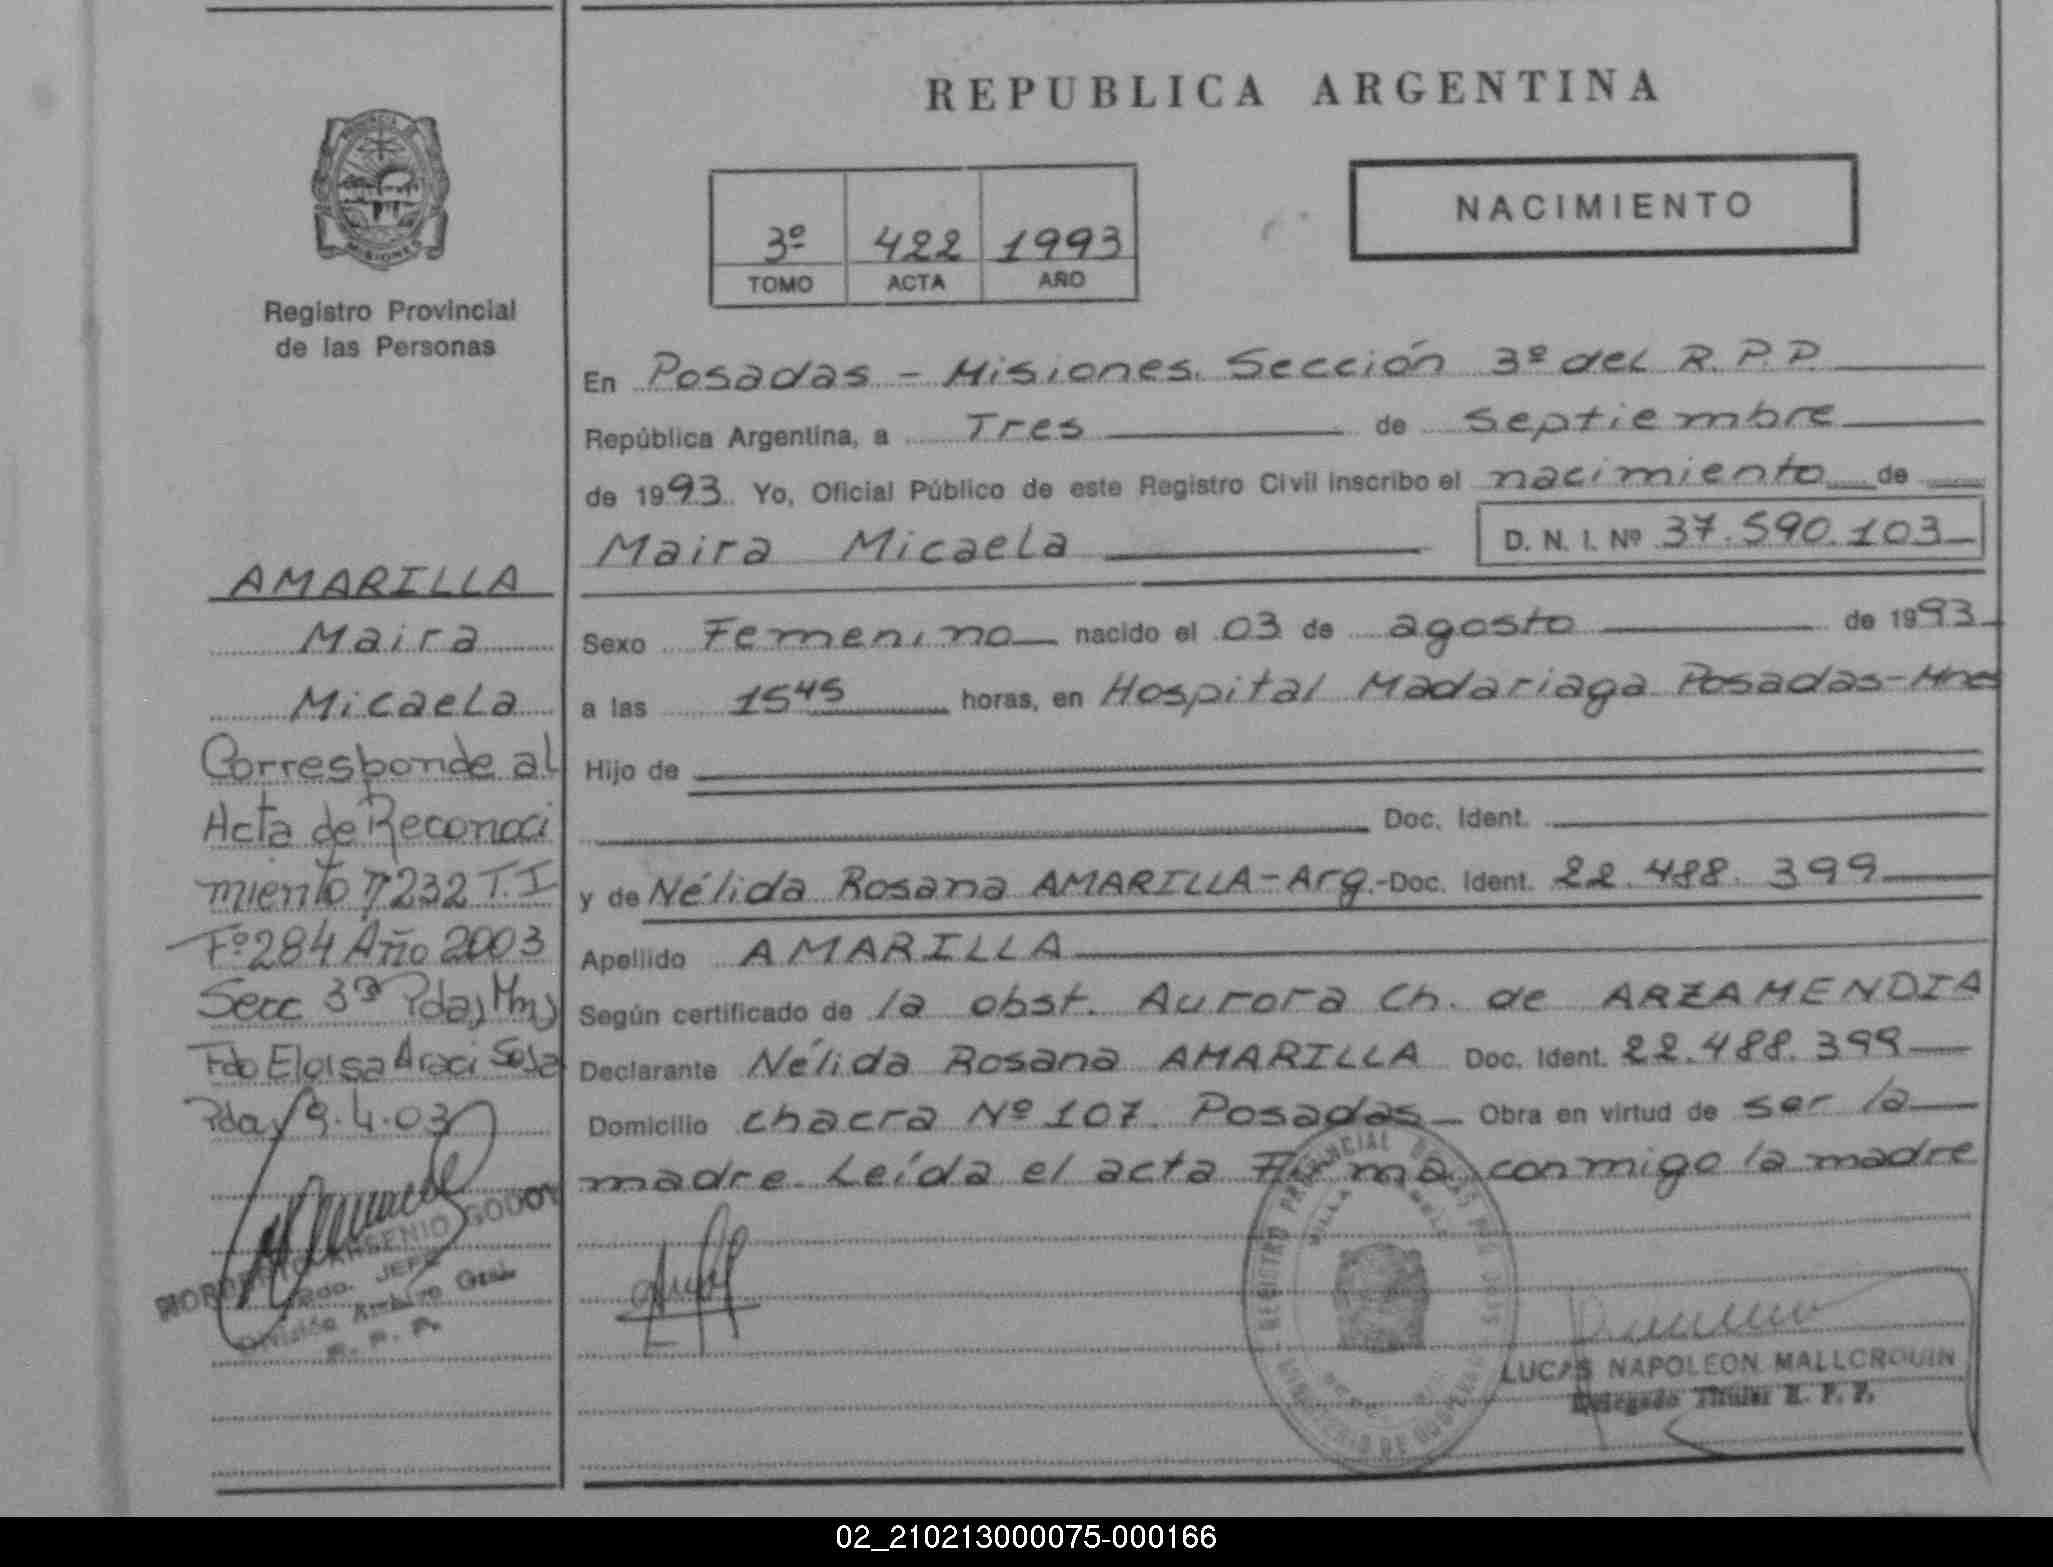 REPUBLICA ARGENTINA
NACIMIENTO
3º 422 1993
TOMO ACTA AÑO
MISIONES
Registro Provincial
de las Personas
AMARILLA
Maira
Micaela
Corresponde al
Acta de Reconoci
miento nº 232 T. I
Fº 284 Año 2003
Secc 3ª Pdas Mns
Fdo Eloisa Araci Sosa
Pdas 9.4.03
ARSENIO GODOY
JEFE
División Archivo Gral.
R. P. P.
En Posadas - Misiones. Sección 3º del R. P. P.
República Argentina, a Tres de Septiembre
de 1993. Yo, Oficial Público de este Registro Civil inscribo el nacimiento de
Maira Micaela D. N. I. Nº 37.590.103
Sexo Femenino nacido el 03 de agosto de 1993
a las 15 45 horas, en Hospital Madariaga Posadas-Mnes
Hijo de
Doc. Ident.
y de Nélida Rosana AMARILLA-Arg.-Doc. Ident. 22.488.399
Apellido AMARILLA
Según certificado de la obst. Aurora Ch. de ARZAMENDIA
Declarante Nélida Rosana AMARILLA Doc. Ident. 22.488.399
Domicilio chacra Nº 107. Posadas Obra en virtud de ser la
madre. Leída el acta Firma conmigo la madre
REGISTRO PROVINCIAL DE LAS PERSONAS
MINISTERIO DE GOBIERNO
LUCAS NAPOLEON MALLCROUIN
Delegado Titular R. P. P.
02_210213000075-000166